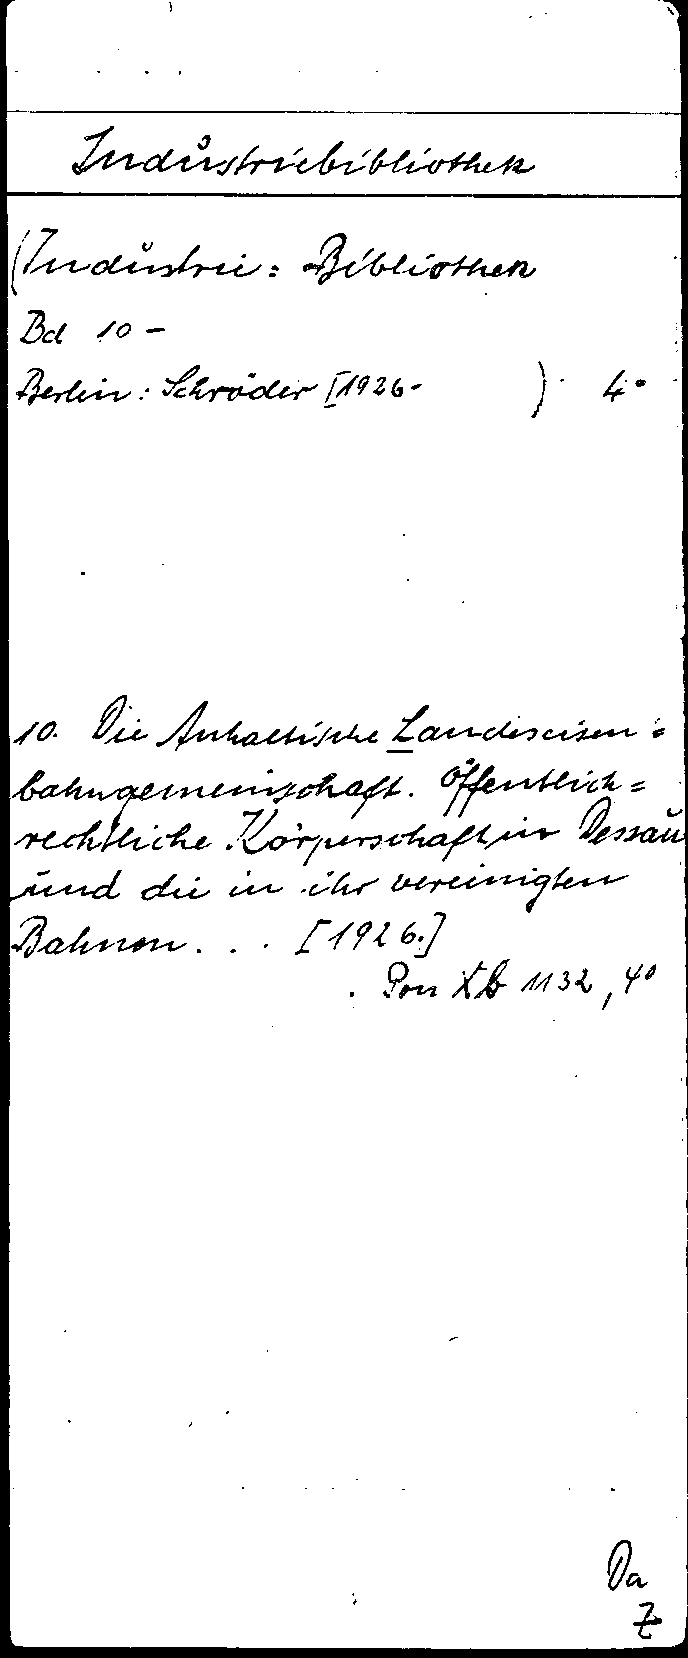 Industriebibliothek
(Industrie= Bibliothek
Bd 10 -
Berlin: Schröder [1926- ) 4°
10. Die Anhaltische Landeseisen=
bahngemeinschaft. Öffentlich=
rechtliche Körperschaft in Dessau
und die in ihr vereinigten
Bahnen... [1926.]
Pon Xb 1132, 4°
Da
Z